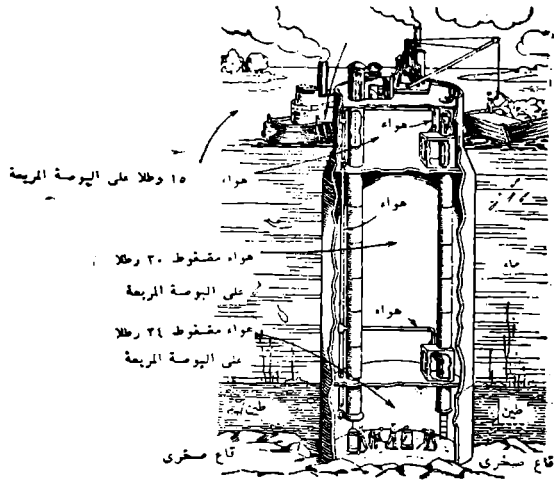 هواء
١٥ رطلا على البوصة المربعة
هواء
هواء
هواء مضغوط ٢٠ رطلا
على البوصة المربعة
ماء
هواء
هواء مضغوط ٢٤ رطلا
على البوصة المربعة
طين
طين
قاع صخرى
قاع صخرى